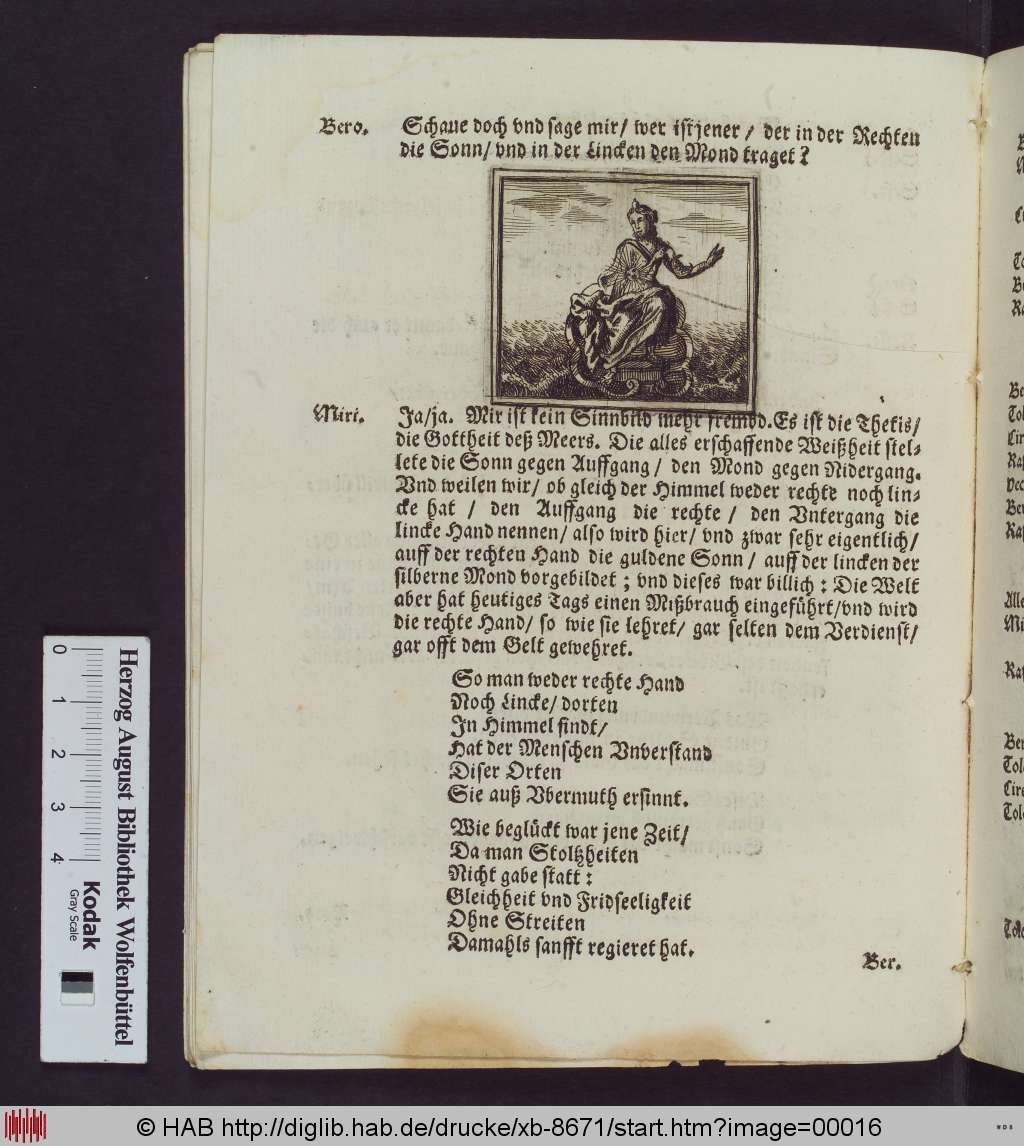 Bero. Schaue doch vnd sage mir/ wer ist jener / der in der Rechten
die Sonn/ vnd in der Lincken den Mond traget?
Miri. Ja/ja. Mir ist kein Sinnbild mehr frembd. Es ist die Thetis/
die Gottheit deß Meers. Die alles erschaffende Weißheit stel-
lete die Sonn gegen Auffgang / den Mond gegen Nidergang.
Vnd weilen wir/ ob gleich der Himmel weder rechte noch lin-
cke hat / den Auffgang die rechte / den Vntergang die
lincke Hand nennen/ also wird hier/ vnd zwar sehr eigentlich/
auff der rechten Hand die guldene Sonn / auff der lincken der
silberne Mond vorgebildet ; vnd dieses war billich : Die Welt
aber hat heutiges Tags einen Mißbrauch eingeführt/vnd wird
die rechte Hand/ so wie sie lehret/ gar selten dem Verdienst/
gar offt dem Gelt gewehret.
So man weder rechte Hand
Noch Lincke/ dorten
In Himmel findt/
Hat der Menschen Vnverstand
Diser Orten
Sie auß Vbermuth ersinnt.
Wie beglückt war jene Zeit/
Da man Stoltzheiten
Nicht gabe statt :
Gleichheit vnd Fridseeligkeit
Ohne Streiten
Damahls sanfft regieret hat.
Ber.
0
1
2
3
4
Herzog August Bibliothek Wolfenbüttel
Kodak
Gray Scale
Ber
Tol
Cir
Raf
Ber
Raf
Alle
Mi
Raf
Ber
Tole
Circ
Tole
Tole
© HAB http://diglib.hab.de/drucke/xb-8671/start.htm?image=00016